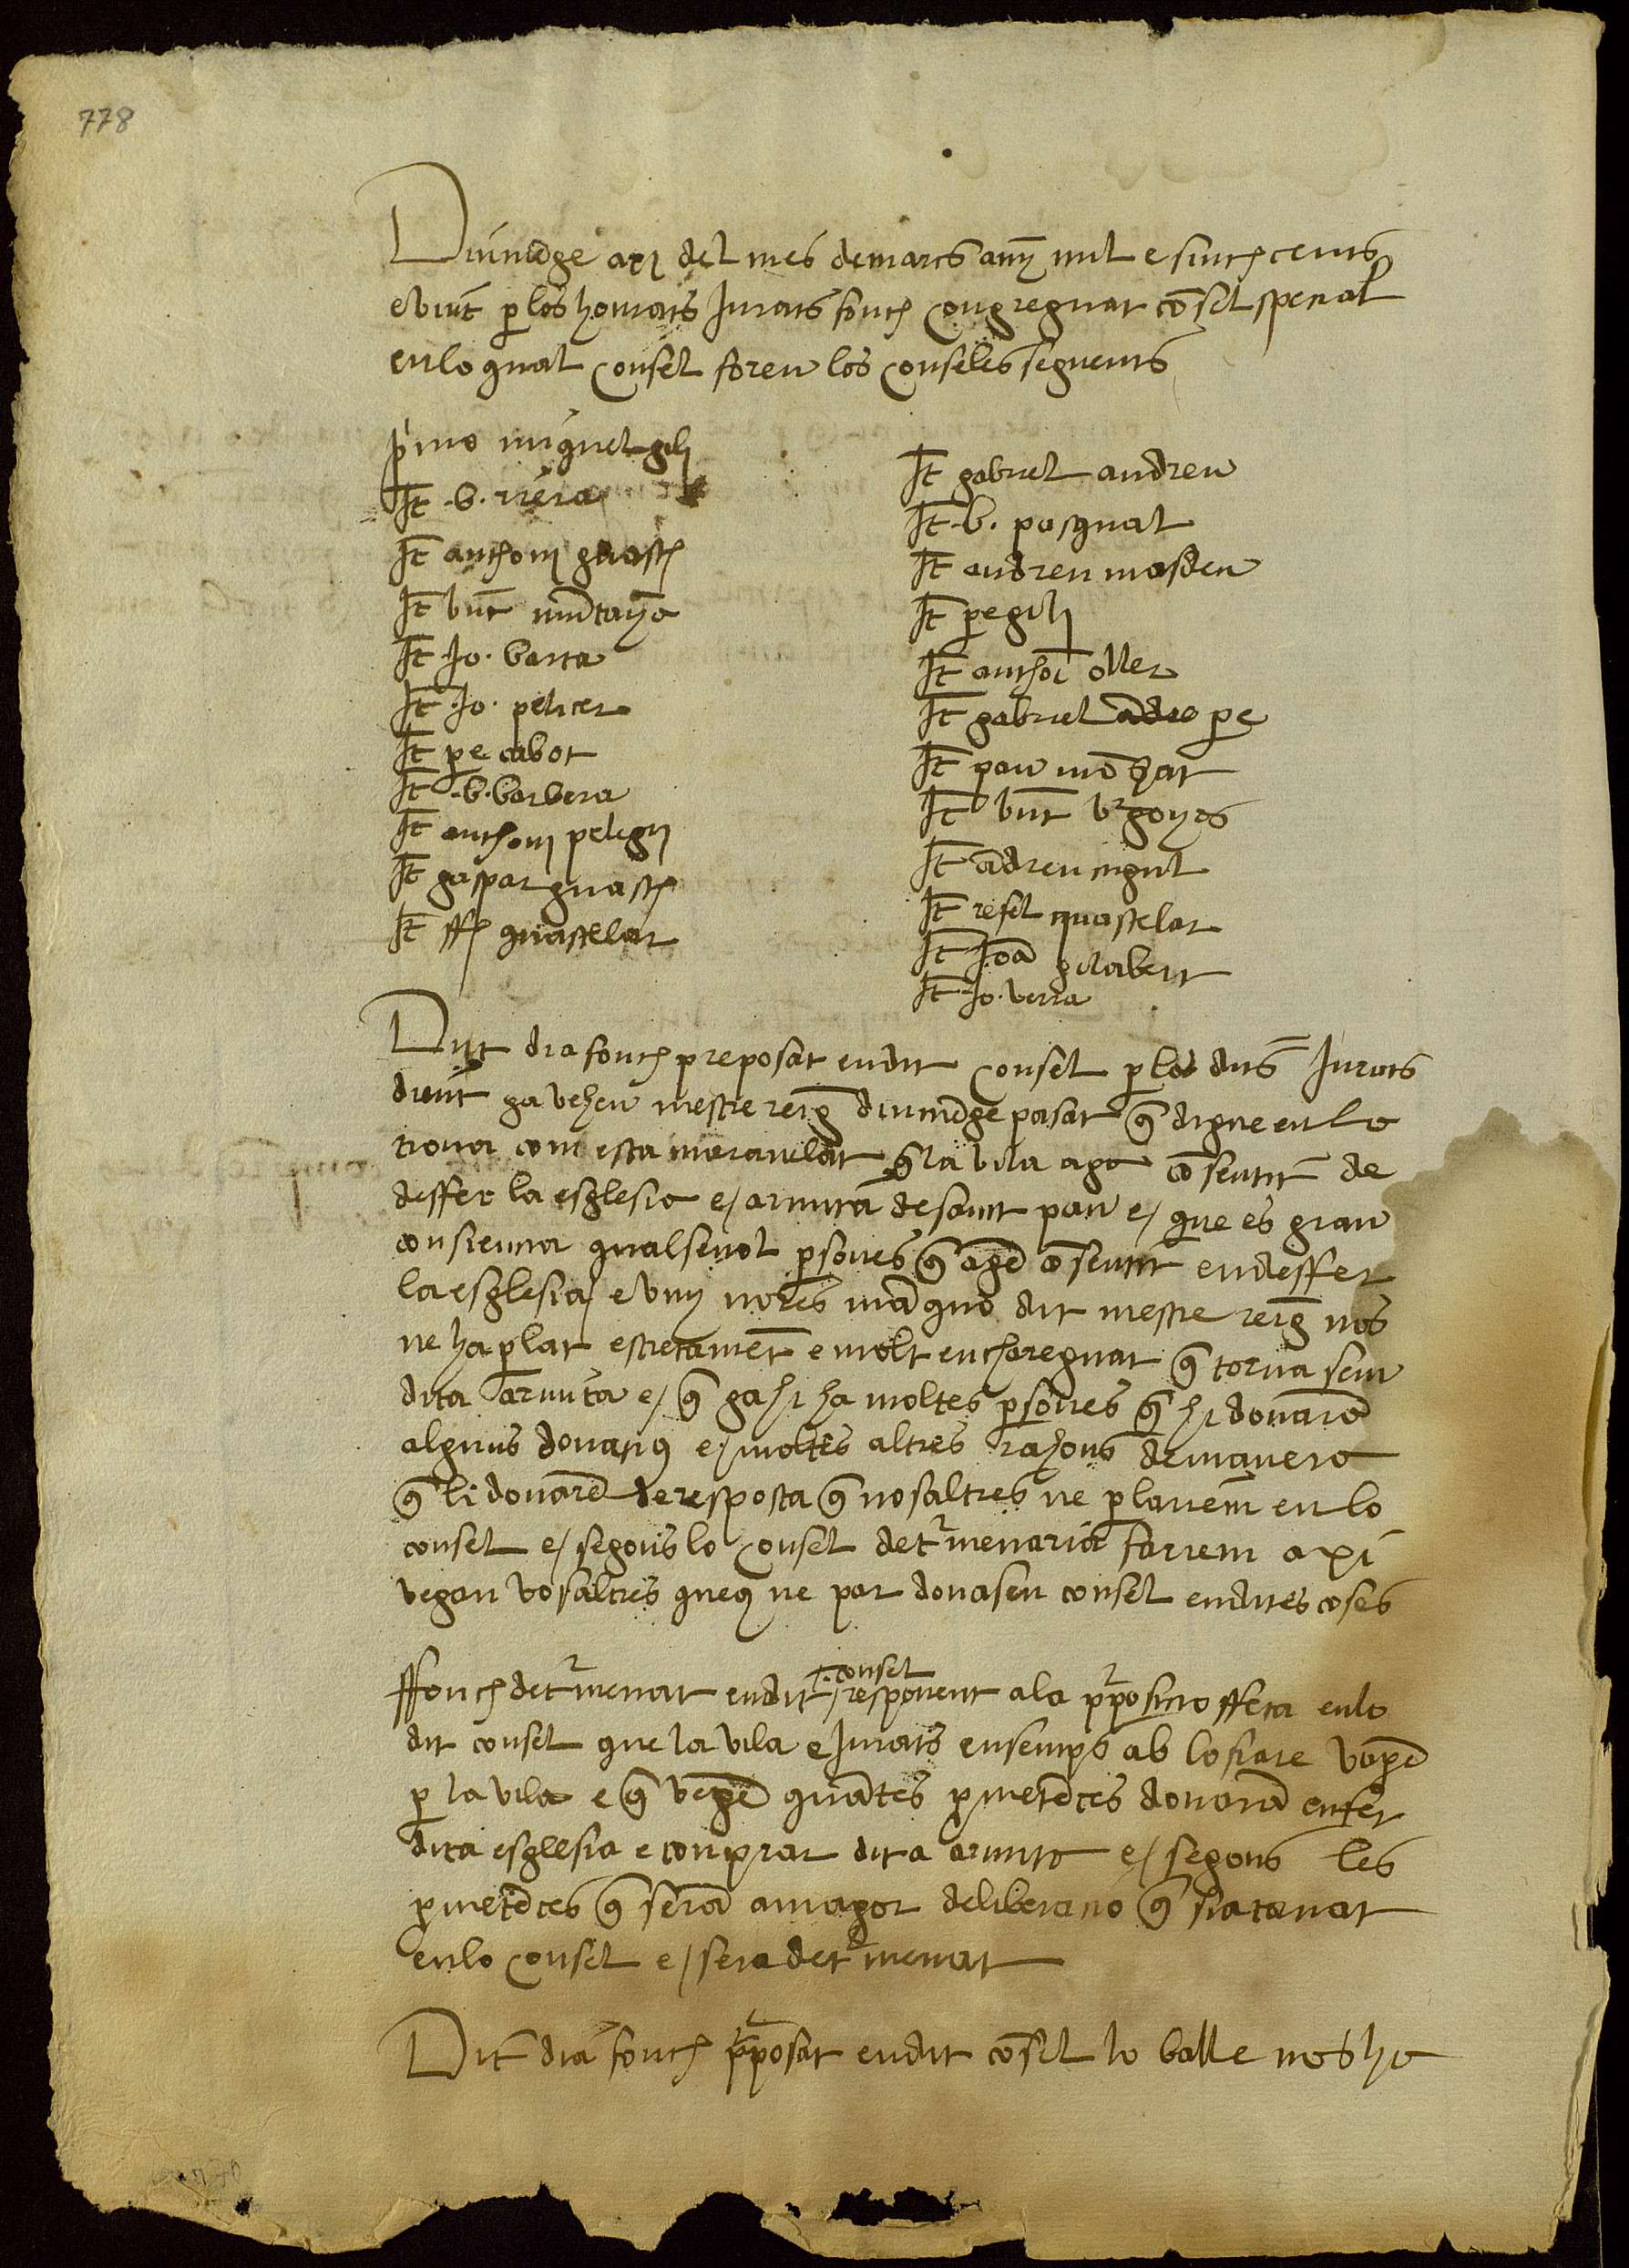 778
Diumēge a xj del mes de mars anÿ mil e sinch cens
e vint ꝑ los honrats Jurats fonch congreguat cōsel special
en lo qual consel foren los conseles seguents
pͥmo miquel gili
It̄ .b. riera
It̄ anthoni guasch
It̄ bn̄t mūtaÿa
It̄ .Jo. barta
It̄ .Jo. pelicer
It̄ ꝑe cabot
It̄ .b. barbera
It̄ anthoni peligri
It̄ gaspar guasch
It̄ ffͬ quastelar
It̄ gabriel andreu
It̄ .b. pasqual
It̄ andreu masdeu
It̄ ꝑe gili
It̄ anthoī oller
It̄ gabriel ꝑe
It̄ pau mōzat
It̄ bn̄t bʳgoyes
It̄ ādreu
It̄ quastelar
It̄ Joā gilabert
It̄ .Jo. verra
Dit dia fonch preposat en dit consel ꝑ los dits Jurats
dient ga veheu mestre reig diumēge pasat q̄ digue en la
trona com esta maravelat q̄ la vila age cōsentit de
deffer la esglesia e/ armita de sant pau e/ que es gran
consiencia qualsevol ꝑsones q̄ agē cōsentit en deffer
la esglesia/ e vuy nō es māquo dit mestre reig nos
ne ha ꝑlat estretamēt e molt encharreguat q̄ torna sem
dita armita e/ q̄ ga hi ha moltes ꝑsones q̄ hi donarā
alguns donatius e/ moltes altres rahons de manera
q̄ li donarē de resposta q̄ nosaltres ne ꝑlariem en lo
consel e/ segons lo consel detʳmenaria farrem axi
vegau vosaltres queus ne par donasen consel en dites coses
ffonch detʳmenat en dit consel responent a la pʳposicio ffeta en lo
dit consel que la vila e Jurats ensemps ab lo fiare vagē
ꝑ la vila e q̄ vegē quātes ꝓmetēces donarā en fer
dita esglesia e comprar dita armita e/ segons les
ꝓmetēces q̄ serā a magor deliberacio q̄ sia tornat
en lo consel e/ sera detʳmenat
Dit dia fonch pʳposat en dit cōsel lo balle nos ha